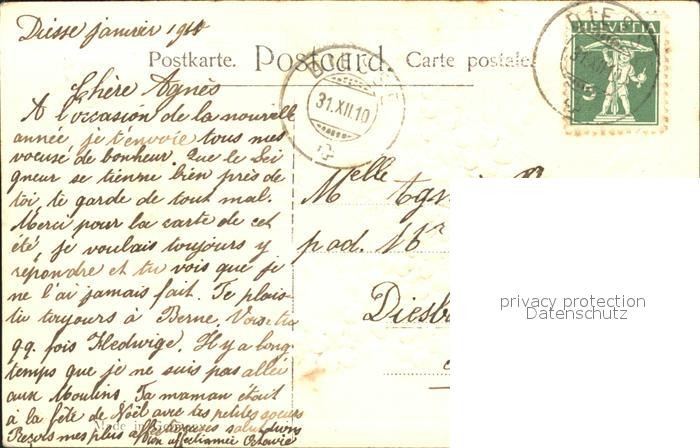 Diesse janvier 1910
Postkarte. Postcard. Carte postale.
HELVETIA
5
31.XII.10
Chère Agnès
A l'occasion de la nouvelle
année, je t'envoie tous mes
voeux de bonheur. Que le Sei
gneur se tienne bien près de
toi, te garde de tout mal.
Merci pour la carte de cet
été, je voulais toujours y
répondre et tu vois que je
ne l'ai jamais fait. Te plais-
tu toujours à Berne. Vois-tu
qq. fois Hedwige. Il y a long-
temps que je ne suis pas allée
aux Moulins. Ta maman était
à la fête de Noël avec tes petites soeurs
Reçois mes plus affectueuses salutations
Ton affectionnée
Melle Agn
pad. Mr
Diesb
Made in
privacy protection
Datenschutz